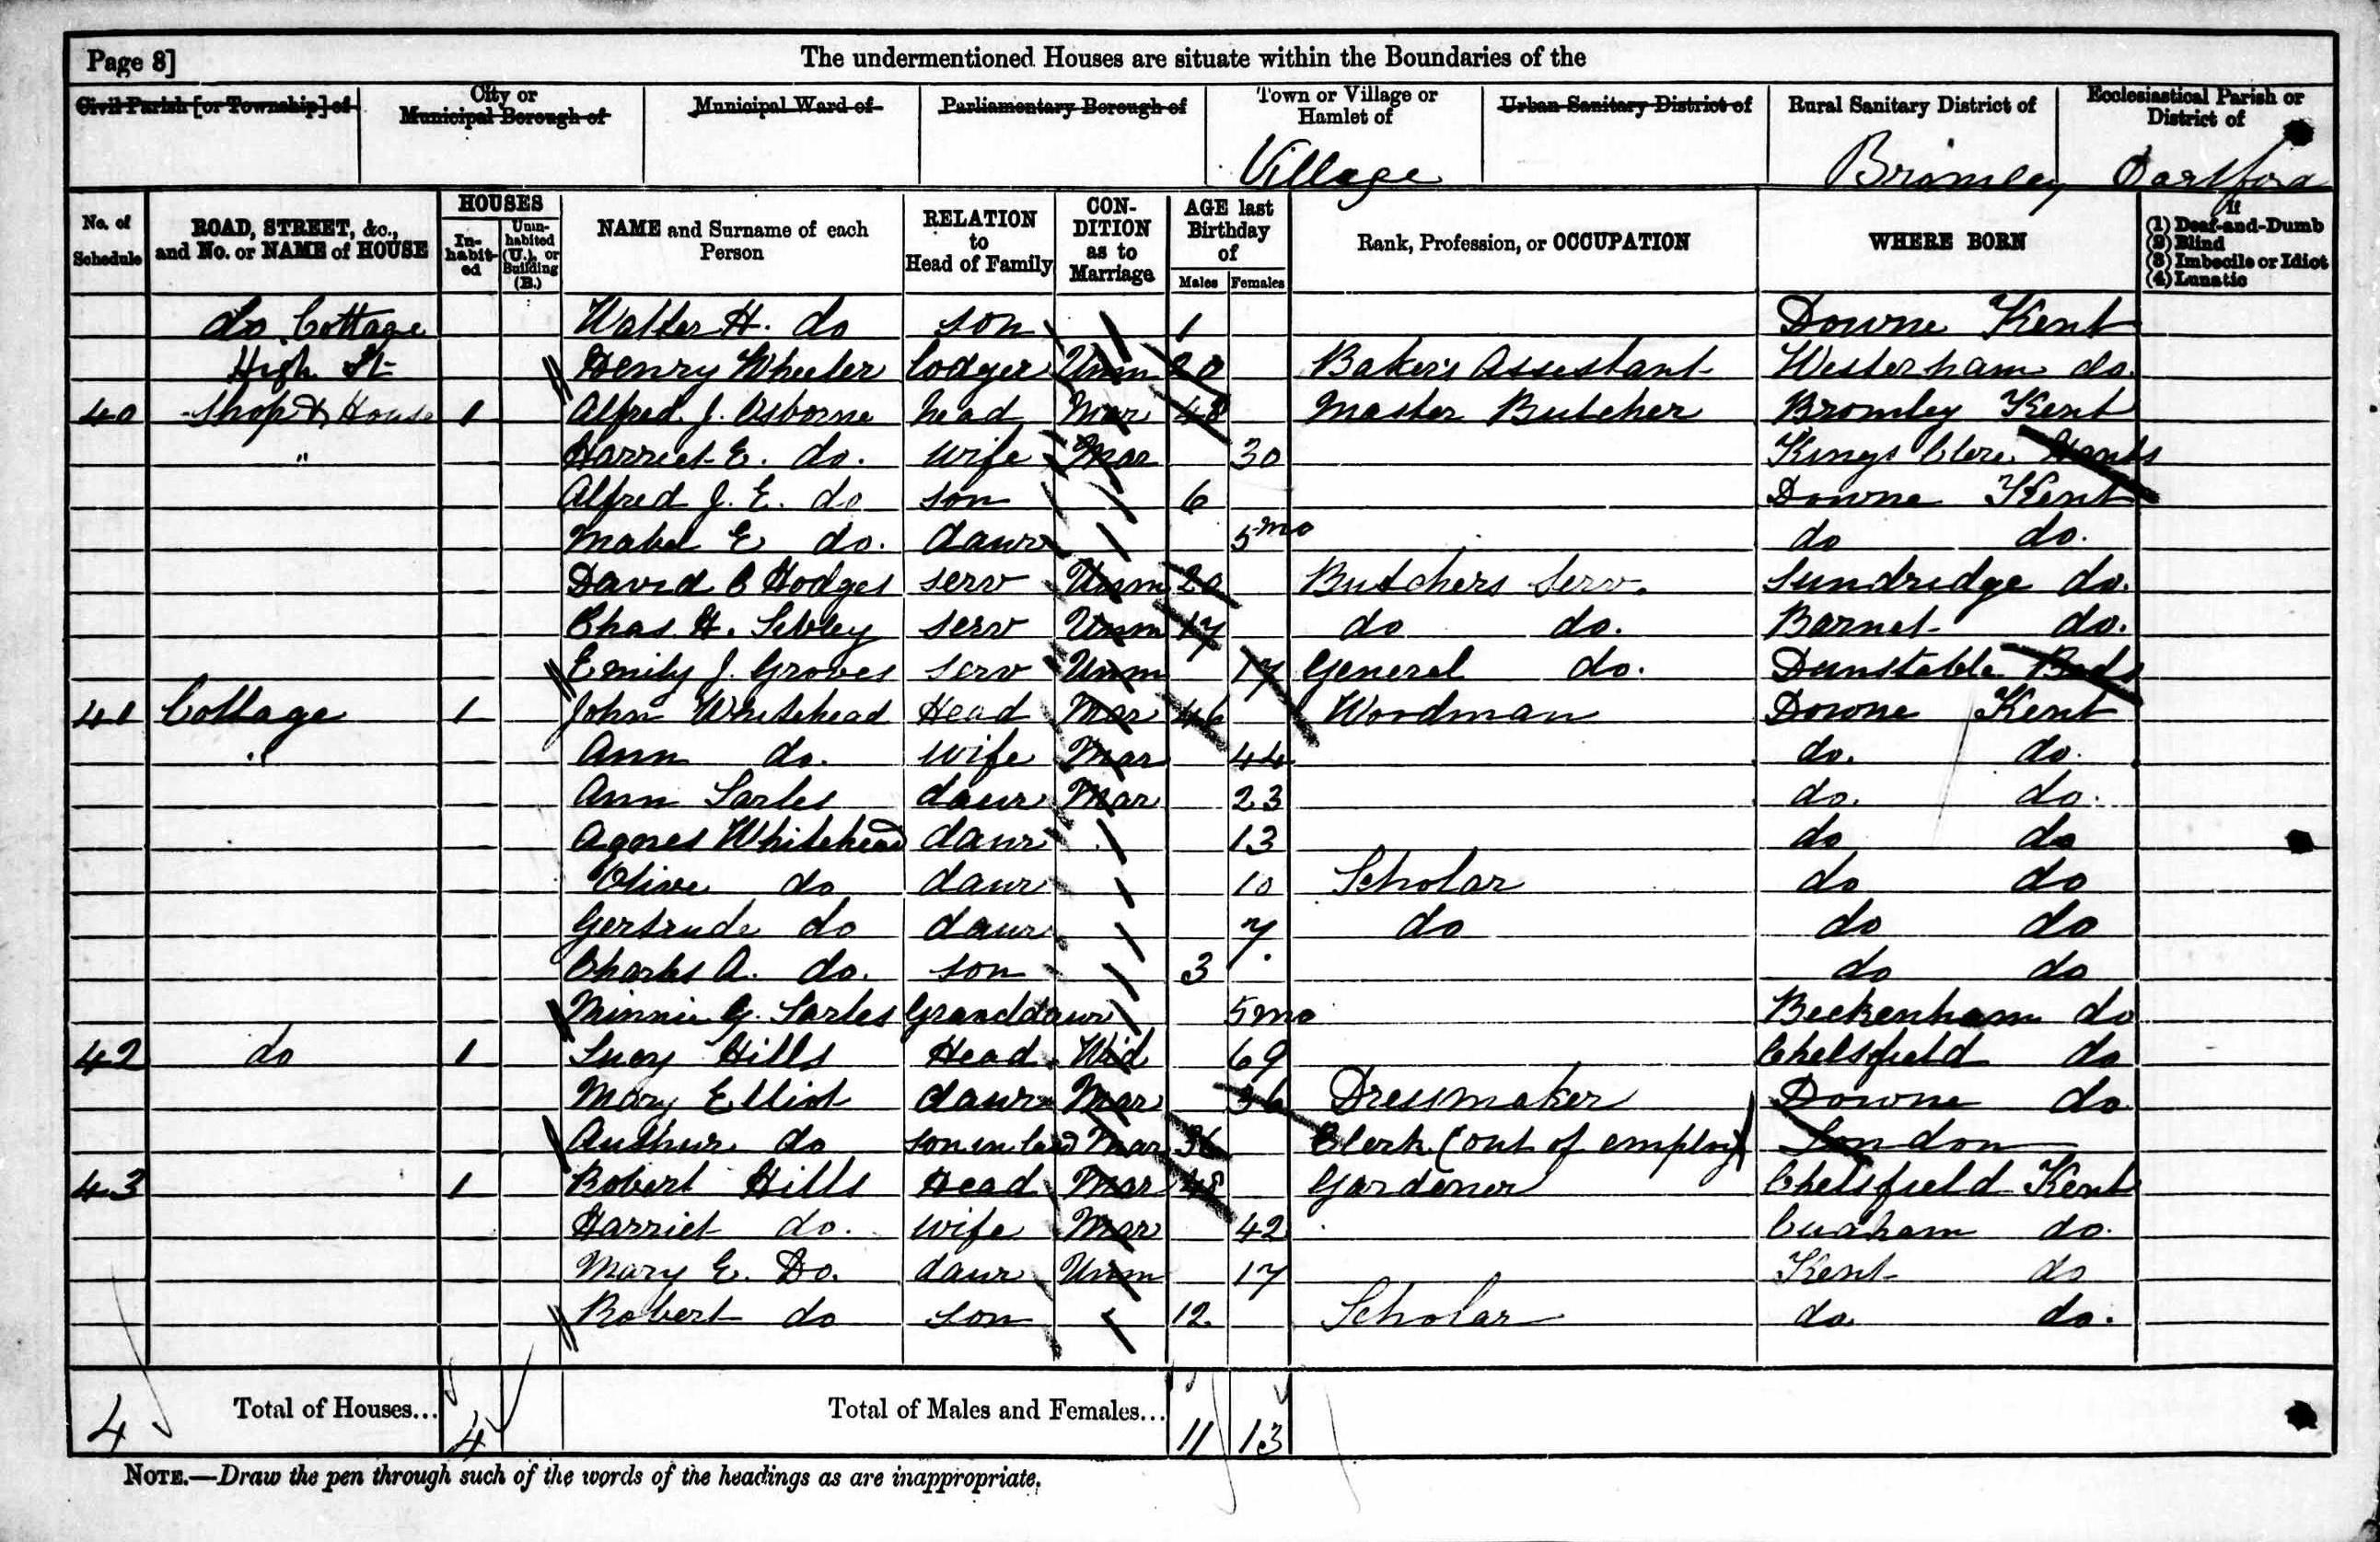 Page 8]
The undermentioned Houses are situate within the Boundaries of the
Civil Parish [or Township] of
City or Municipal Borough of
Municipal Ward of
Parliamentary Borough of
Town or Village or Hamlet of
Urban Sanitary District of
Rural Sanitary District of
Ecclesiastical Parish or District of
Village Bromley Dartford
No. of Schedule
ROAD, STREET, &c., and No. or NAME of HOUSE
HOUSES
Inhabited
Uninhabited (U.), or Building (B.)
NAME and Surname of each Person
RELATION to Head of Family
CONDITION as to Marriage
AGE last Birthday of
Males Females
Rank, Profession, or OCCUPATION
WHERE BORN
If
(1) Deaf-and-Dumb
(2) Blind
(3) Imbecile or Idiot
(4) Lunatic
do Cottage Walter H. do son 1 Downe Kent
High St Henry Wheeler lodger Unm 20 Baker's Assistant Westerham do.
40 Shop & House 1 Alfred J. Osborne head Mar 48 Master Butcher Bromley Kent
" Harriet E. do. wife Mar 30 Kings Clere Hants
Alfred J. E. do son 6 Downe Kent
Mabel E do. daur 5 mo do do.
David C Hodges serv Unm 20 Butchers Serv. Sundridge do.
Chas. H. Sibley serv Unm 17 do do. Barnet do.
Emily J. Groves serv Unm 17 General do. Dunstable Beds
41 Cottage 1 John Whitehead Head Mar 46 Woodman Downe Kent
" Ann do. wife Mar 44 do. do.
Ann Sarles daur Mar 23 do. do.
Agnes Whitehead daur 13 do do
Olive do daur 10 Scholar do do
Gertrude do daur 7 do do do
Charles A. do. son 3 do do
Minnie G. Sarles Granddaur 5 mo Beckenham do
42 do 1 Lucy Hills Head Wid 69 Chelsfield do
Mary Elliot daur Mar 36 Dressmaker Downe do
Authur do son in law Mar 36 Clerk (out of employ) London
43 1 Robert Hills Head Mar 48 Gardener Chelsfield Kent
Harriet do. wife Mar 42 Cudham do.
Mary E. Do. daur Unm 17 Kent do
Robert do son 12 Scholar do do.
4 Total of Houses... 4 Total of Males and Females... 11 13
NOTE.—Draw the pen through such of the words of the headings as are inappropriate.